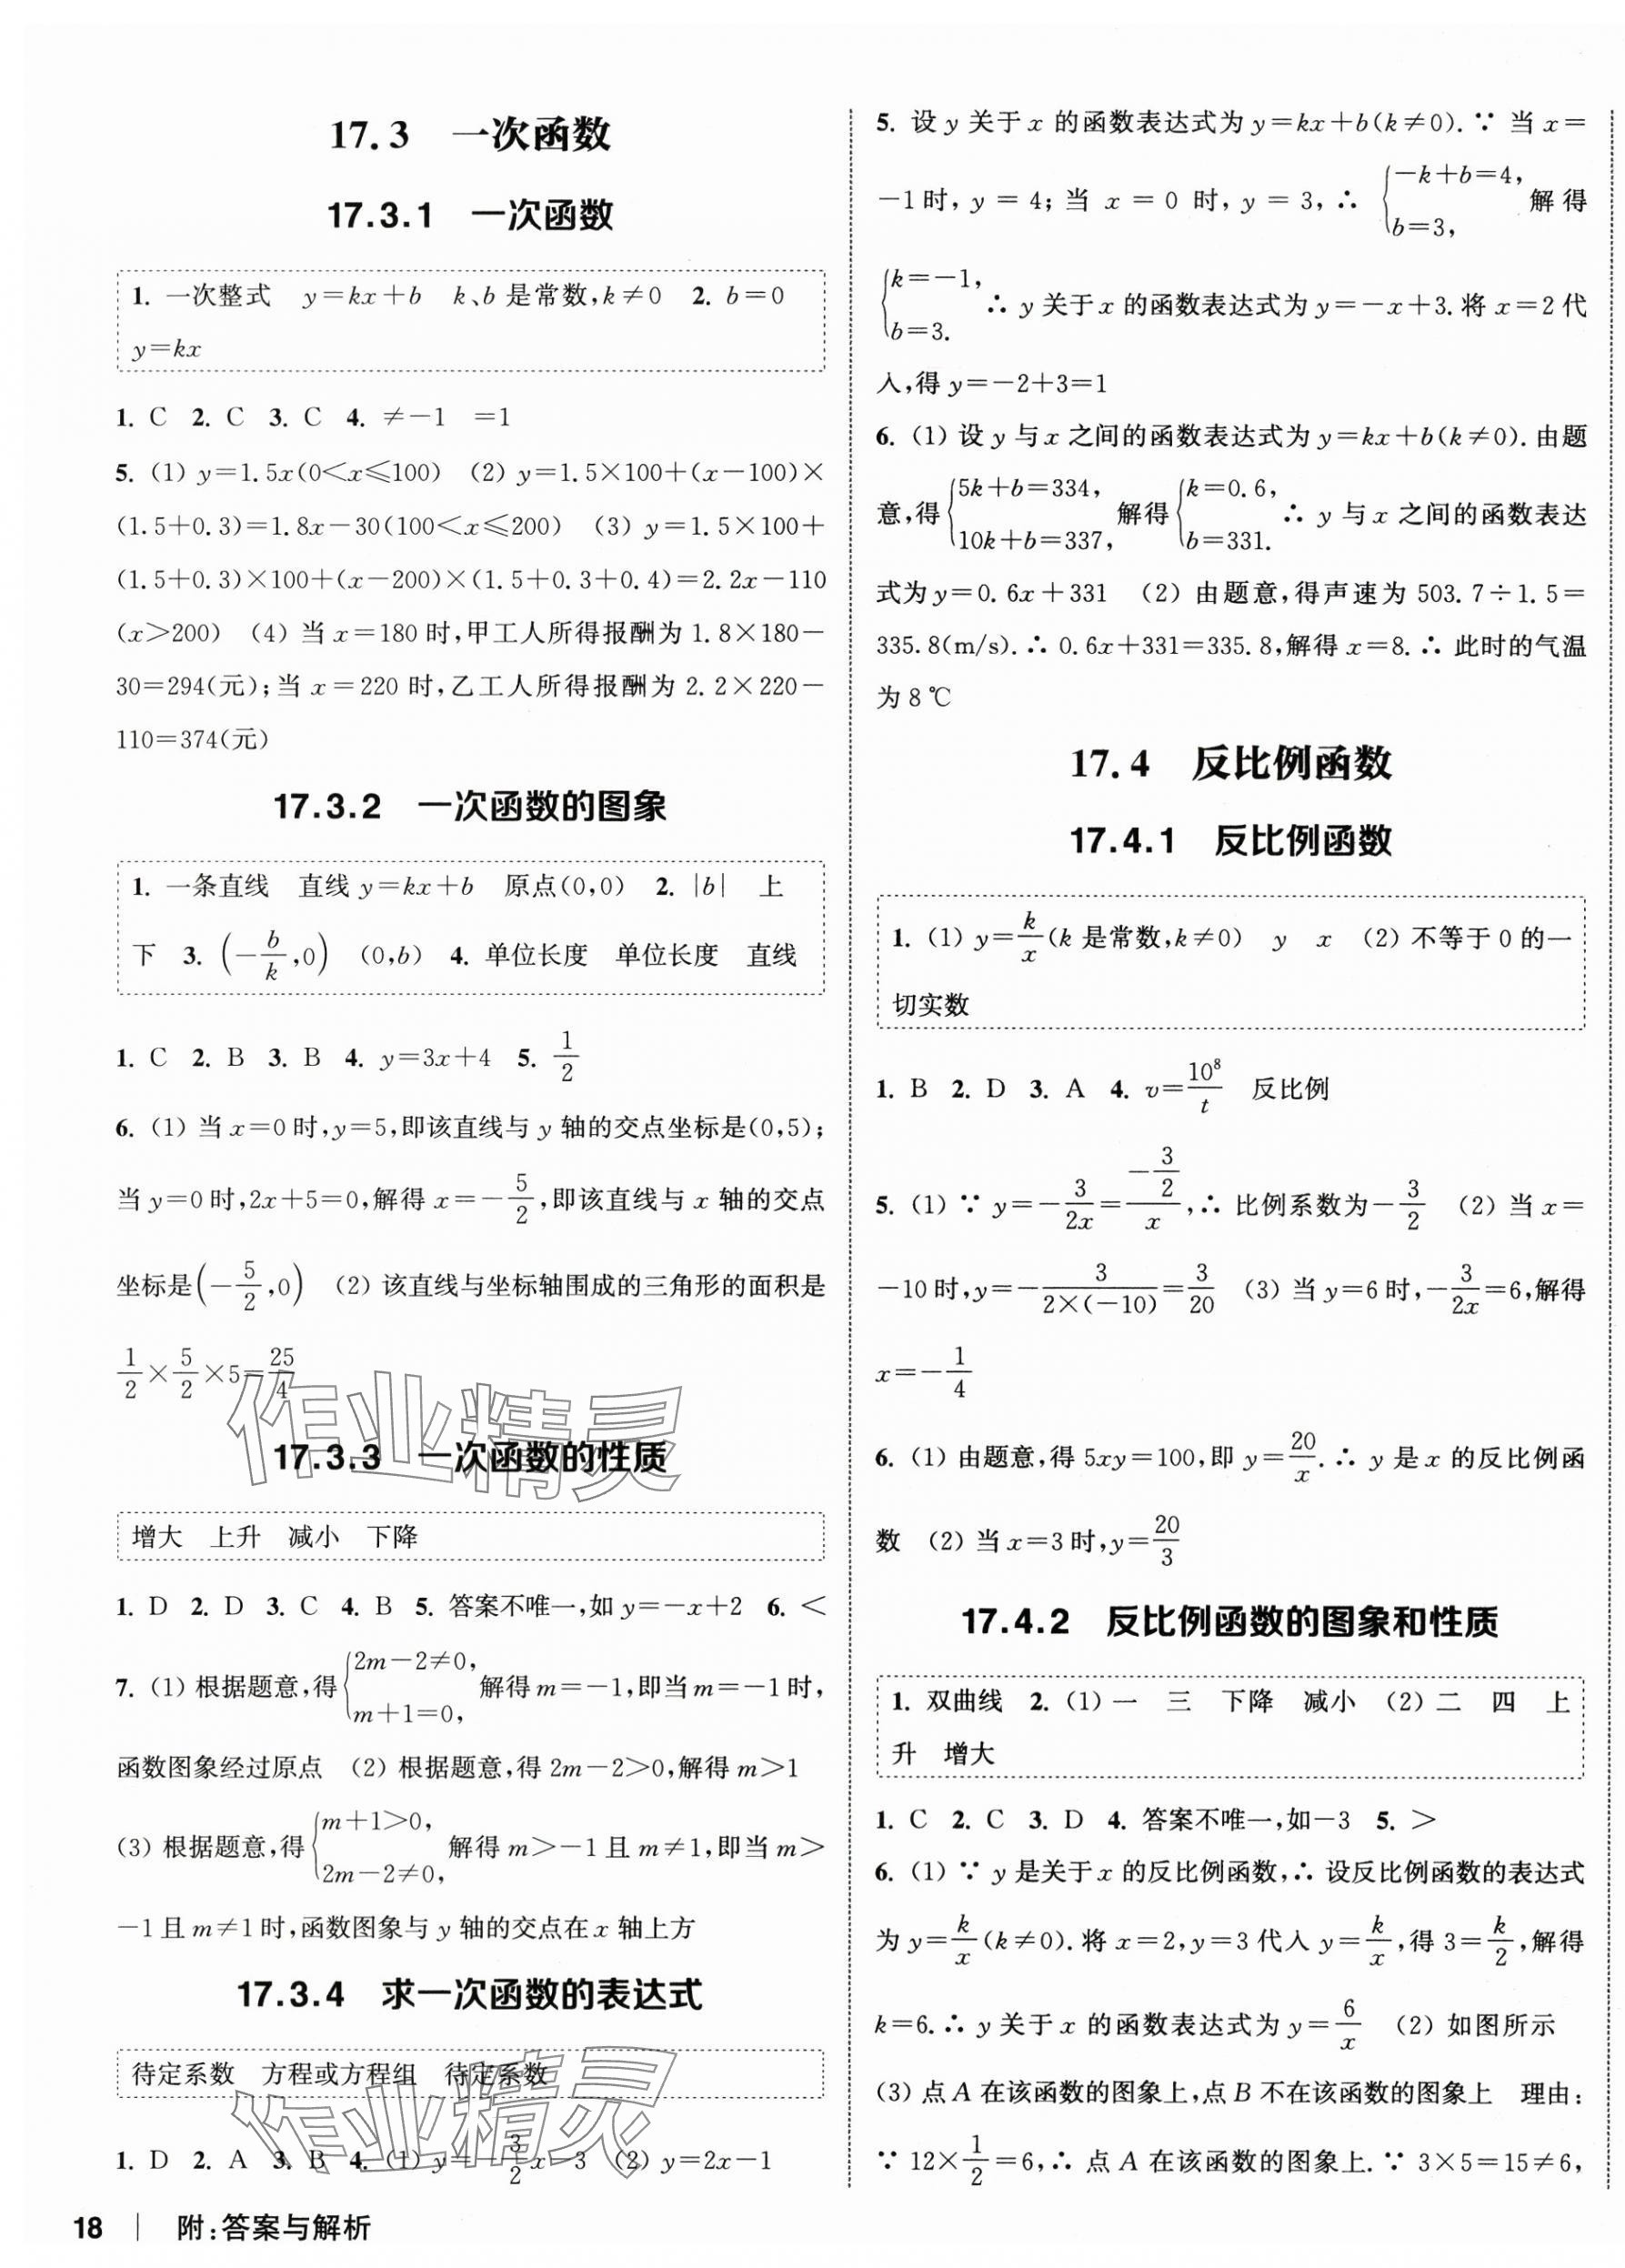 17.3 一次函数
17.3.1 一次函数
1. 一次整式 y=kx+b k、b 是常数,k≠0 2. b=0
y=kx
1. C 2. C 3. C 4. ≠-1 =1
5. (1) y=1.5x(0<x≤100) (2) y=1.5×100+(x-100)×
(1.5+0.3)=1.8x-30(100<x≤200) (3) y=1.5×100+
(1.5+0.3)×100+(x-200)×(1.5+0.3+0.4)=2.2x-110
(x>200) (4) 当 x=180 时,甲工人所得报酬为 1.8×180-
30=294(元);当 x=220 时,乙工人所得报酬为 2.2×220-
110=374(元)
17.3.2 一次函数的图象
1. 一条直线 直线 y=kx+b 原点(0,0) 2. |b| 上
下 3. (-b/k,0) (0,b) 4. 单位长度 单位长度 直线
1. C 2. B 3. B 4. y=3x+4 5. 1/2
6. (1) 当 x=0 时,y=5,即该直线与 y 轴的交点坐标是(0,5);
当 y=0 时,2x+5=0,解得 x=-5/2,即该直线与 x 轴的交点
坐标是(-5/2,0) (2) 该直线与坐标轴围成的三角形的面积是
1/2×5/2×5=25/4
作业精灵
17.3.3 一次函数的性质
增大 上升 减小 下降
1. D 2. D 3. C 4. B 5. 答案不唯一,如 y=-x+2 6. <
7. (1) 根据题意,得{2m-2≠0, m+1=0, 解得 m=-1,即当 m=-1 时,
函数图象经过原点 (2) 根据题意,得 2m-2>0,解得 m>1
(3) 根据题意,得{m+1>0, 2m-2≠0, 解得 m>-1 且 m≠1,即当 m>
-1 且 m≠1 时,函数图象与 y 轴的交点在 x 轴上方
17.3.4 求一次函数的表达式
待定系数 方程或方程组 待定系数
作业精灵
1. D 2. A 3. B 4. (1) y=-3/2x-3 (2) y=2x-1
18 | 附:答案与解析
5. 设 y 关于 x 的函数表达式为 y=kx+b(k≠0).∵ 当 x=
-1 时, y = 4; 当 x = 0 时, y = 3, ∴ {-k+b=4, b=3, 解得
{k=-1, b=3. ∴ y 关于 x 的函数表达式为 y=-x+3.将 x=2 代
入,得 y=-2+3=1
6. (1) 设 y 与 x 之间的函数表达式为 y=kx+b(k≠0).由题
意,得{5k+b=334, 10k+b=337, 解得{k=0.6, b=331. ∴ y 与 x 之间的函数表达
式为 y=0.6x+331 (2) 由题意,得声速为 503.7÷1.5=
335.8(m/s).∴ 0.6x+331=335.8,解得 x=8.∴ 此时的气温
为 8 ℃
17.4 反比例函数
17.4.1 反比例函数
1. (1) y=k/x(k 是常数,k≠0) y x (2) 不等于 0 的一
切实数
1. B 2. D 3. A 4. v=10⁸/t 反比例
5. (1) ∵ y=-3/2x=(-3/2)/x,∴ 比例系数为-3/2 (2) 当 x=
-10 时,y=-3/(2×(-10))=3/20 (3) 当 y=6 时,-3/2x=6,解得
x=-1/4
6. (1) 由题意,得 5xy=100,即 y=20/x.∴ y 是 x 的反比例函
数 (2) 当 x=3 时,y=20/3
17.4.2 反比例函数的图象和性质
1. 双曲线 2. (1) 一 三 下降 减小 (2) 二 四 上
升 增大
1. C 2. C 3. D 4. 答案不唯一,如-3 5. >
6. (1) ∵ y 是关于 x 的反比例函数,∴ 设反比例函数的表达式
为 y=k/x(k≠0).将 x=2,y=3 代入 y=k/x,得 3=k/2,解得
k=6.∴ y 关于 x 的函数表达式为 y=6/x (2) 如图所示
(3) 点 A 在该函数的图象上,点 B 不在该函数的图象上 理由:
∵ 12×1/2=6,∴ 点 A 在该函数的图象上.∵ 3×5=15≠6,